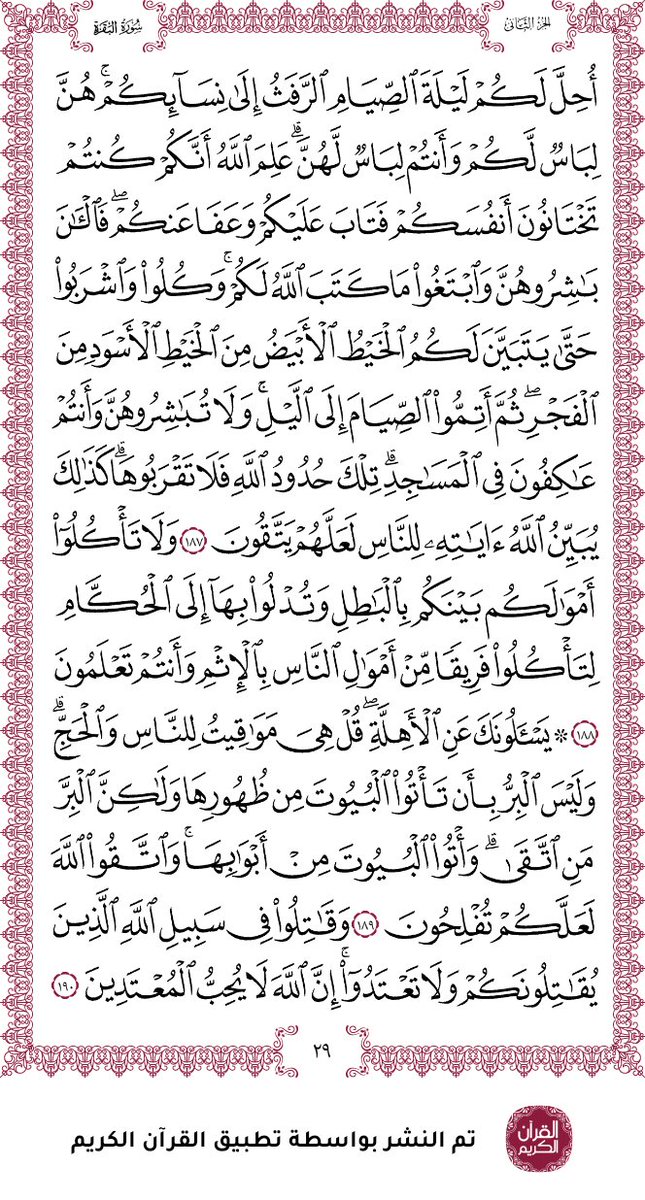 الجزء الثاني
سُورَةُ البَقَرَةِ
أُحِلَّ لَكُمۡ لَيۡلَةَ ٱلصِّيَامِ ٱلرَّفَثُ إِلَىٰ نِسَآئِكُمۡۚ هُنَّ
لِبَاسٞ لَّكُمۡ وَأَنتُمۡ لِبَاسٞ لَّهُنَّۗ عَلِمَ ٱللَّهُ أَنَّكُمۡ كُنتُمۡ
تَخۡتَانُونَ أَنفُسَكُمۡ فَتَابَ عَلَيۡكُمۡ وَعَفَا عَنكُمۡۖ فَٱلۡـَٰٔنَ
بَٰشِرُوهُنَّ وَٱبۡتَغُواْ مَا كَتَبَ ٱللَّهُ لَكُمۡۚ وَكُلُواْ وَٱشۡرَبُواْ
حَتَّىٰ يَتَبَيَّنَ لَكُمُ ٱلۡخَيۡطُ ٱلۡأَبۡيَضُ مِنَ ٱلۡخَيۡطِ ٱلۡأَسۡوَدِ مِنَ
ٱلۡفَجۡرِۖ ثُمَّ أَتِمُّواْ ٱلصِّيَامَ إِلَى ٱلَّيۡلِۚ وَلَا تُبَٰشِرُوهُنَّ وَأَنتُمۡ
عَٰكِفُونَ فِي ٱلۡمَسَٰجِدِۗ تِلۡكَ حُدُودُ ٱللَّهِ فَلَا تَقۡرَبُوهَاۗ كَذَٰلِكَ
يُبَيِّنُ ٱللَّهُ ءَايَٰتِهِۦ لِلنَّاسِ لَعَلَّهُمۡ يَتَّقُونَ ١٨٧ وَلَا تَأۡكُلُوٓاْ
أَمۡوَٰلَكُم بَيۡنَكُم بِٱلۡبَٰطِلِ وَتُدۡلُواْ بِهَآ إِلَى ٱلۡحُكَّامِ
لِتَأۡكُلُواْ فَرِيقٗا مِّنۡ أَمۡوَٰلِ ٱلنَّاسِ بِٱلۡإِثۡمِ وَأَنتُمۡ تَعۡلَمُونَ
١٨٨ ۞ يَسۡـَٔلُونَكَ عَنِ ٱلۡأَهِلَّةِۖ قُلۡ هِيَ مَوَٰقِيتُ لِلنَّاسِ وَٱلۡحَجِّۗ
وَلَيۡسَ ٱلۡبِرُّ بِأَن تَأۡتُواْ ٱلۡبُيُوتَ مِن ظُهُورِهَا وَلَٰكِنَّ ٱلۡبِرَّ
مَنِ ٱتَّقَىٰۗ وَأۡتُواْ ٱلۡبُيُوتَ مِنۡ أَبۡوَٰبِهَاۚ وَٱتَّقُواْ ٱللَّهَ
لَعَلَّكُمۡ تُفۡلِحُونَ ١٨٩ وَقَٰتِلُواْ فِي سَبِيلِ ٱللَّهِ ٱلَّذِينَ
يُقَٰتِلُونَكُمۡ وَلَا تَعۡتَدُوٓاْۚ إِنَّ ٱللَّهَ لَا يُحِبُّ ٱلۡمُعۡتَدِينَ ١٩٠
٢٩
القرآن
الكريم
تم النشر بواسطة تطبيق القرآن الكريم